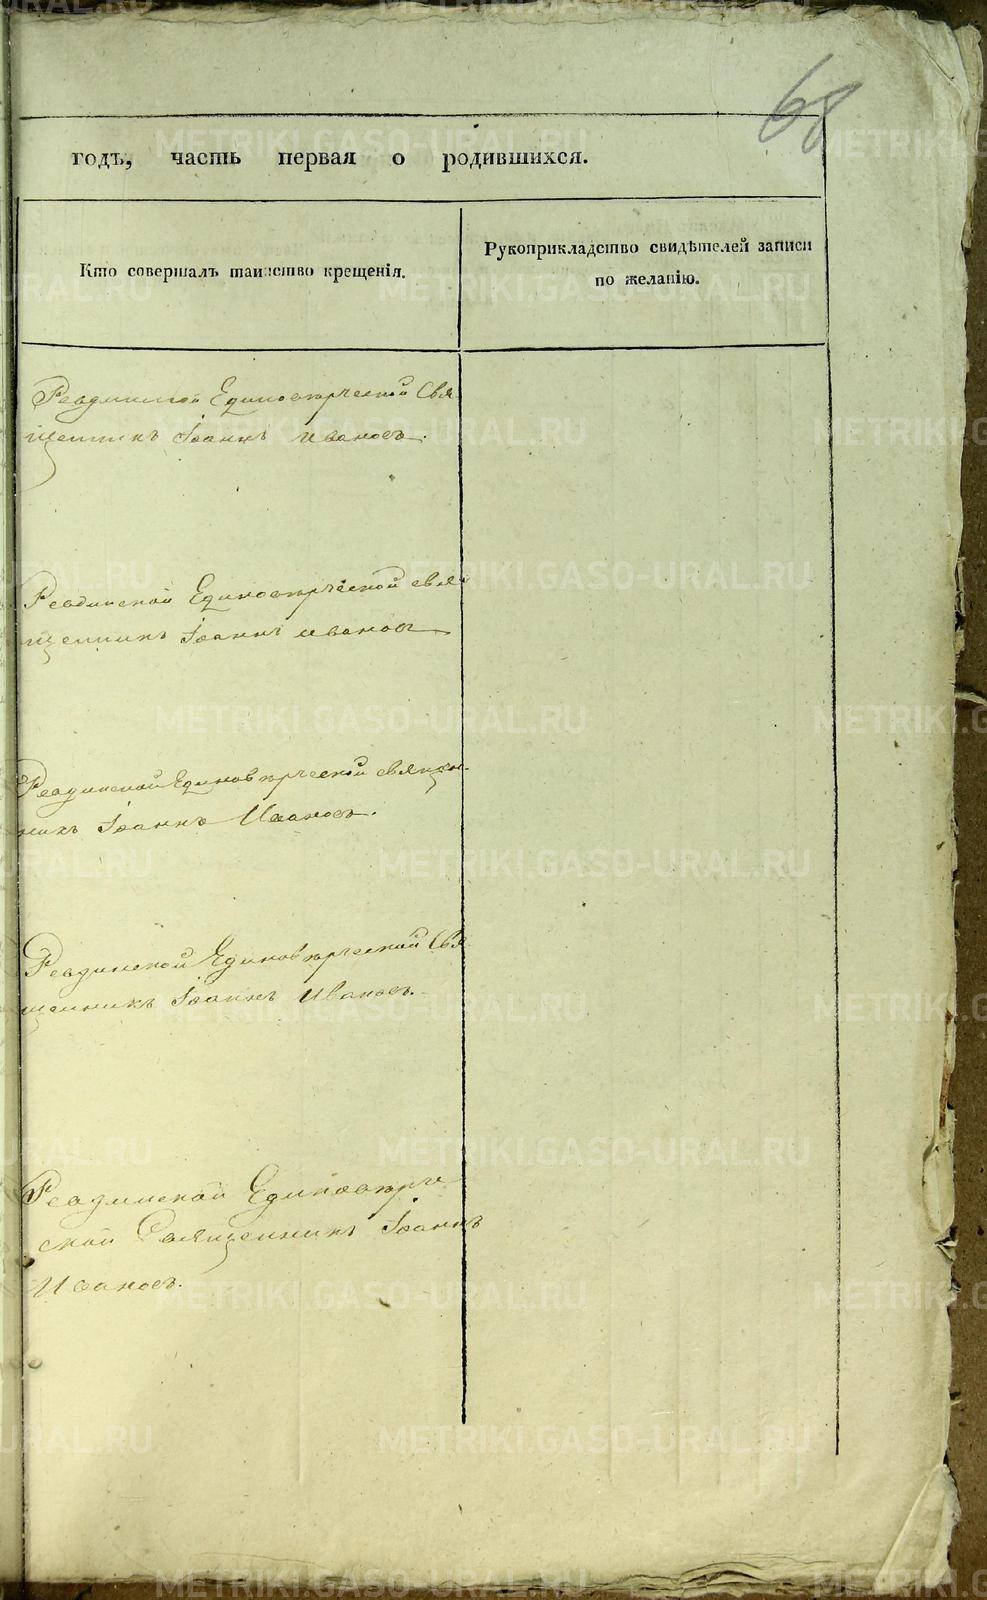 68
годъ, часть первая о родившихся.
Кто совершалъ таинство крещенія.
Рукоприкладство свидѣтелей записи
по желанію.
Ревдинской Единовѣрческой Свя
щенникъ Іоаннъ Ивановъ.
Ревдинской Единовѣрческой свя
щенникъ Іоаннъ Ивановъ
Ревдинской Единовѣрческой священ-
никъ Іоаннъ Ивановъ.
Ревдинской Единовѣрческой Свя
щенникъ Іоаннъ Ивановъ.
Ревдинской Единовѣрче
ской Священникъ Іоаннъ
Ивановъ.
METRIKI.GASO-URAL.RU